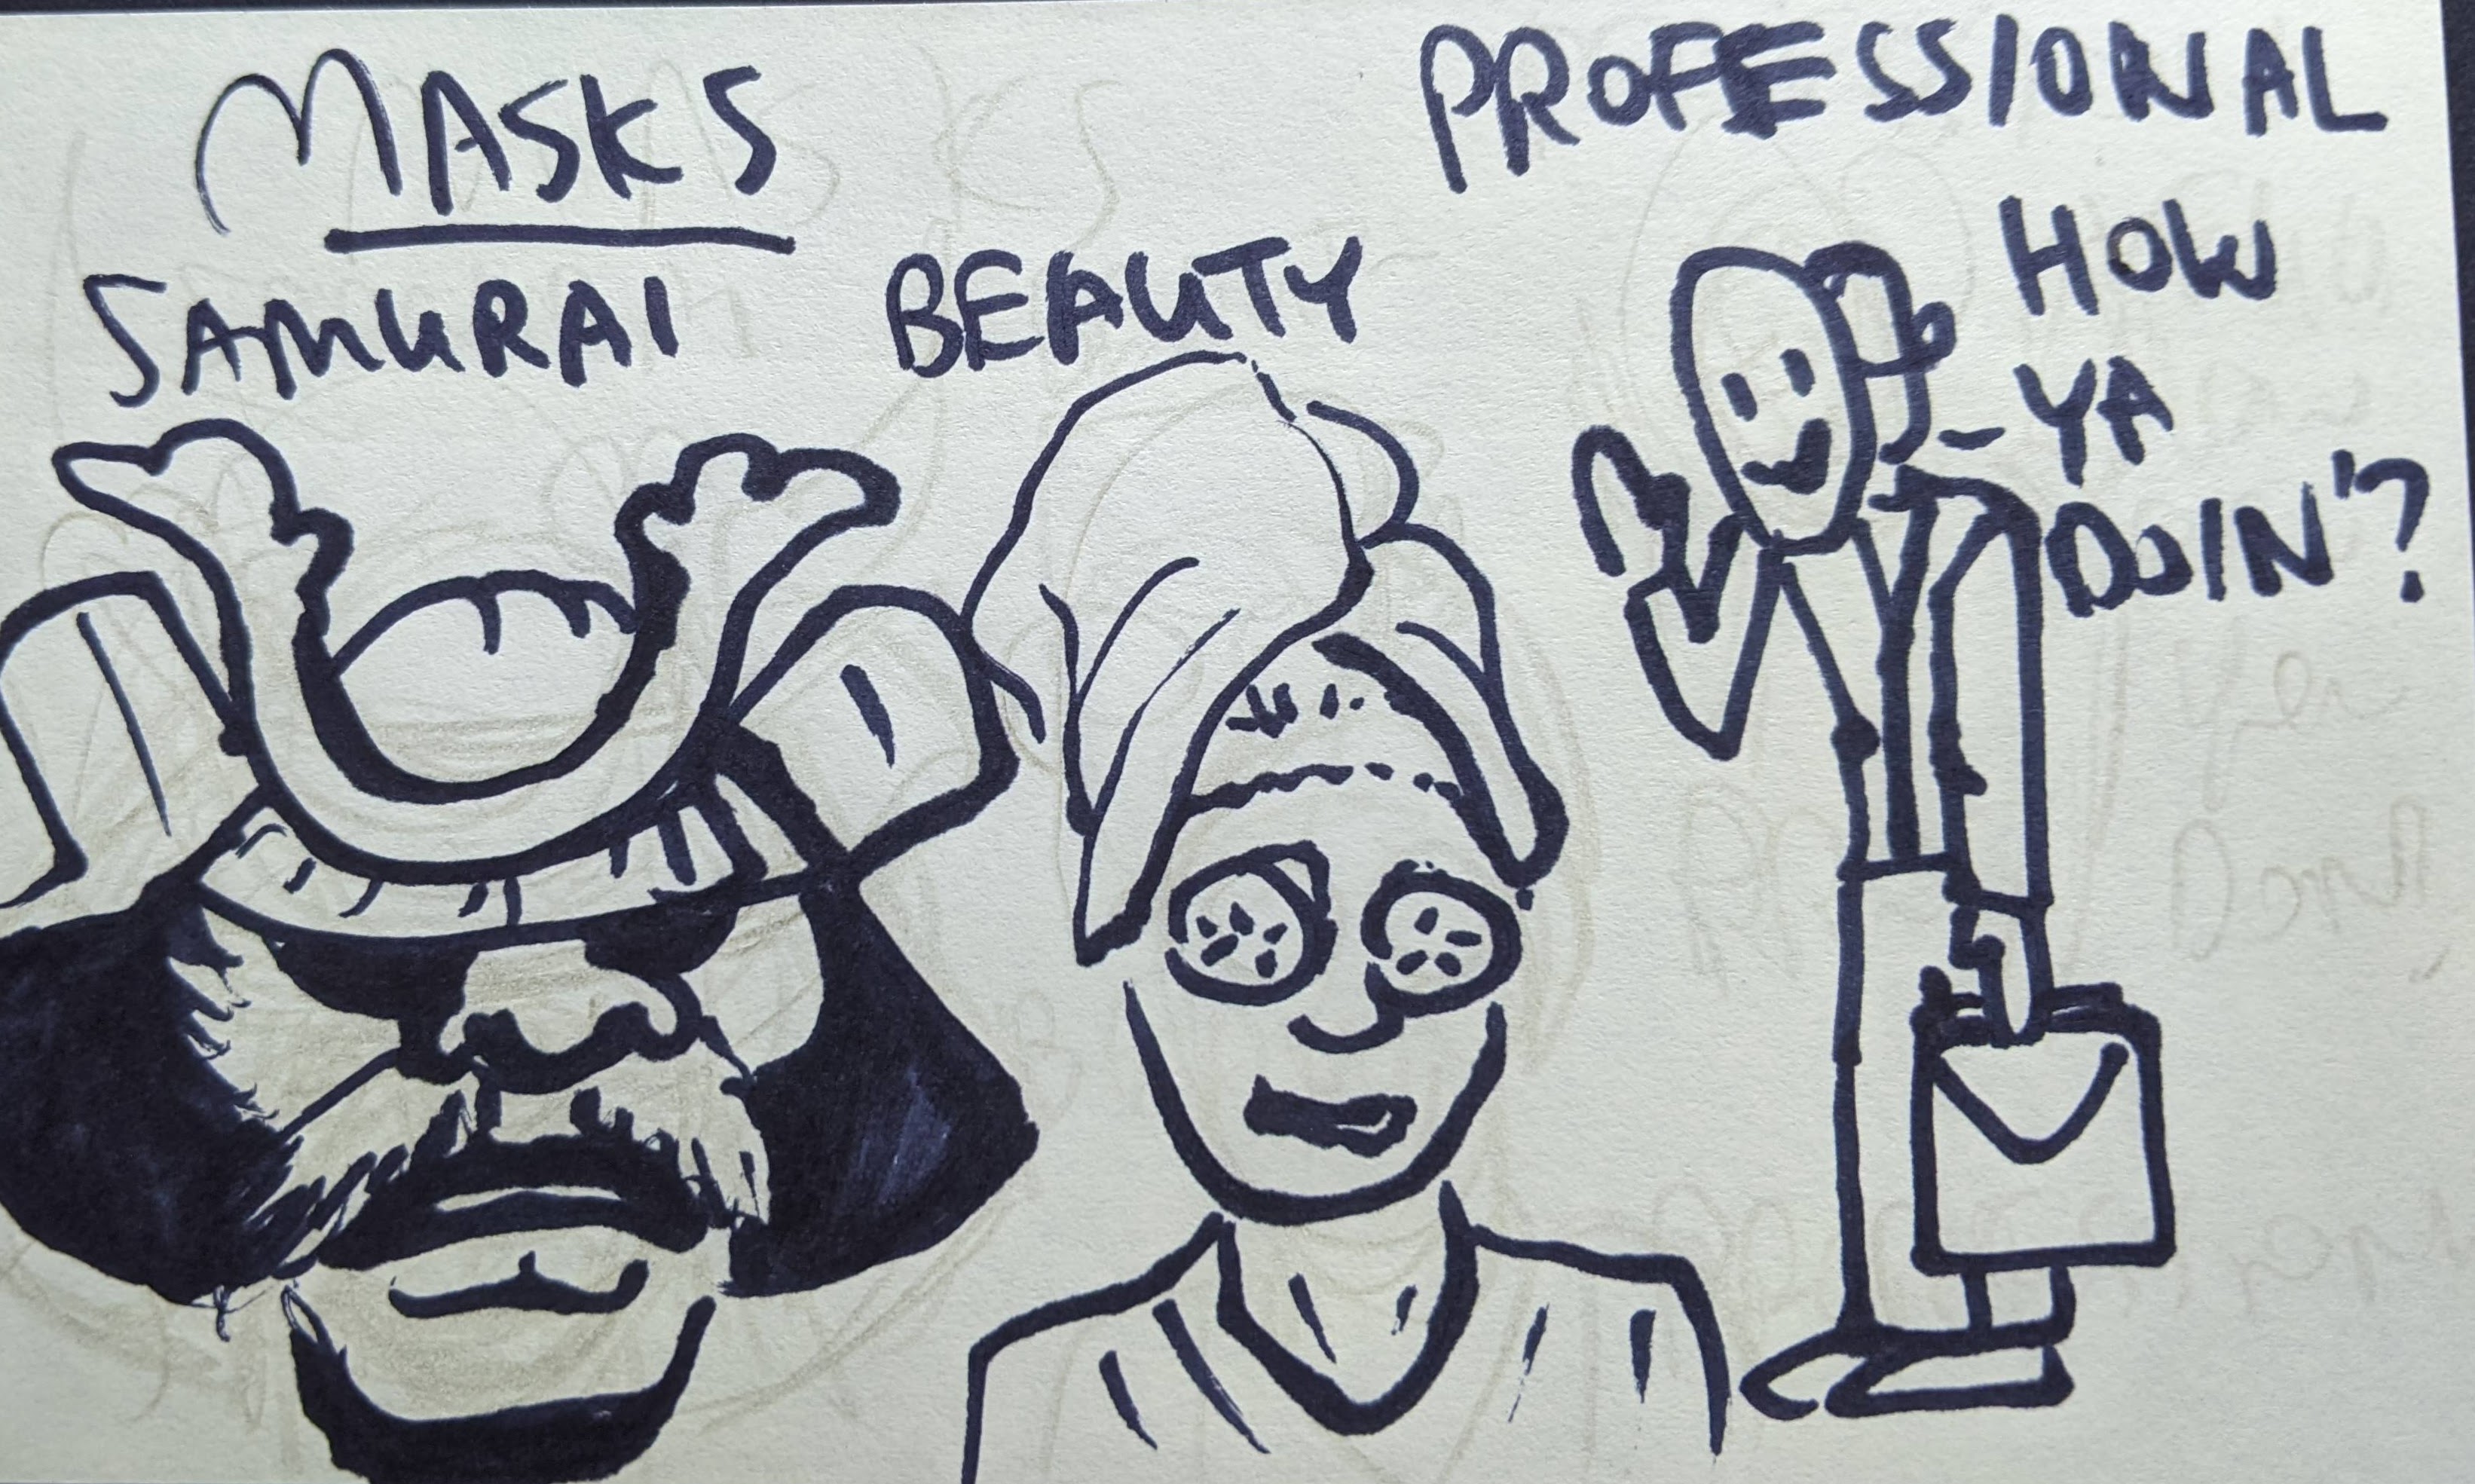 MASKS
SAMURAI
BEAUTY
PROFESSIONAL
HOW
YA
DOIN'?